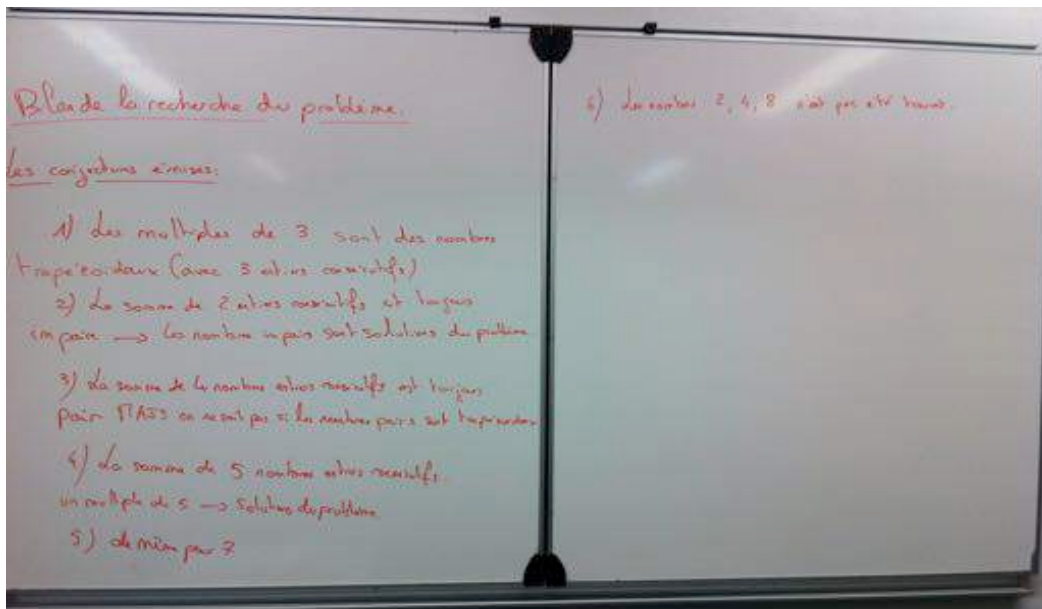 Bilan de la recherche du problème.
Les conjectures émises:
1) Les multiples de 3 sont des nombres
trapézoïdaux (avec 3 entiers consécutifs)
2) La somme de 2 entiers consécutifs est toujours
impaire → les nombres impairs sont solutions du problème
3) La somme de 4 nombres entiers consécutifs est toujours
pair MAIS on ne sait pas si les nombres pairs sont trapézoïdaux
4) La somme de 5 nombres entiers consécutifs.
un multiple de 5 → solution du problème
5) de même pour 7
6) Les nombres 2, 4, 8 n'ont pas été trouvés.